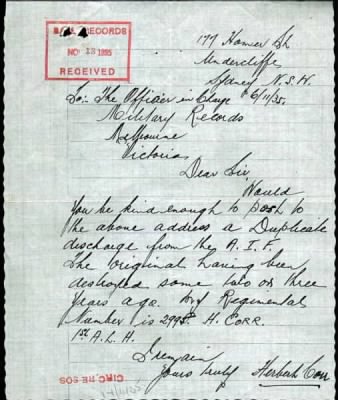 RECORDS
NOV 13 1935
RECEIVED
177 Homer St
Undercliffe
Sydney N.S.W.
6/11/35.
To:- The Officer in Charge
Military Records
Melbourne
Victoria
Dear Sir,
Would
You be kind enough to post to
the above address a Duplicate
discharge from the A.I.F.
The original having been
destroyed some two or three
years ago. My Regimental
Number is 2995. H. CORR.
1st A.L.H.
I remain
Yours truly Herbert Corr